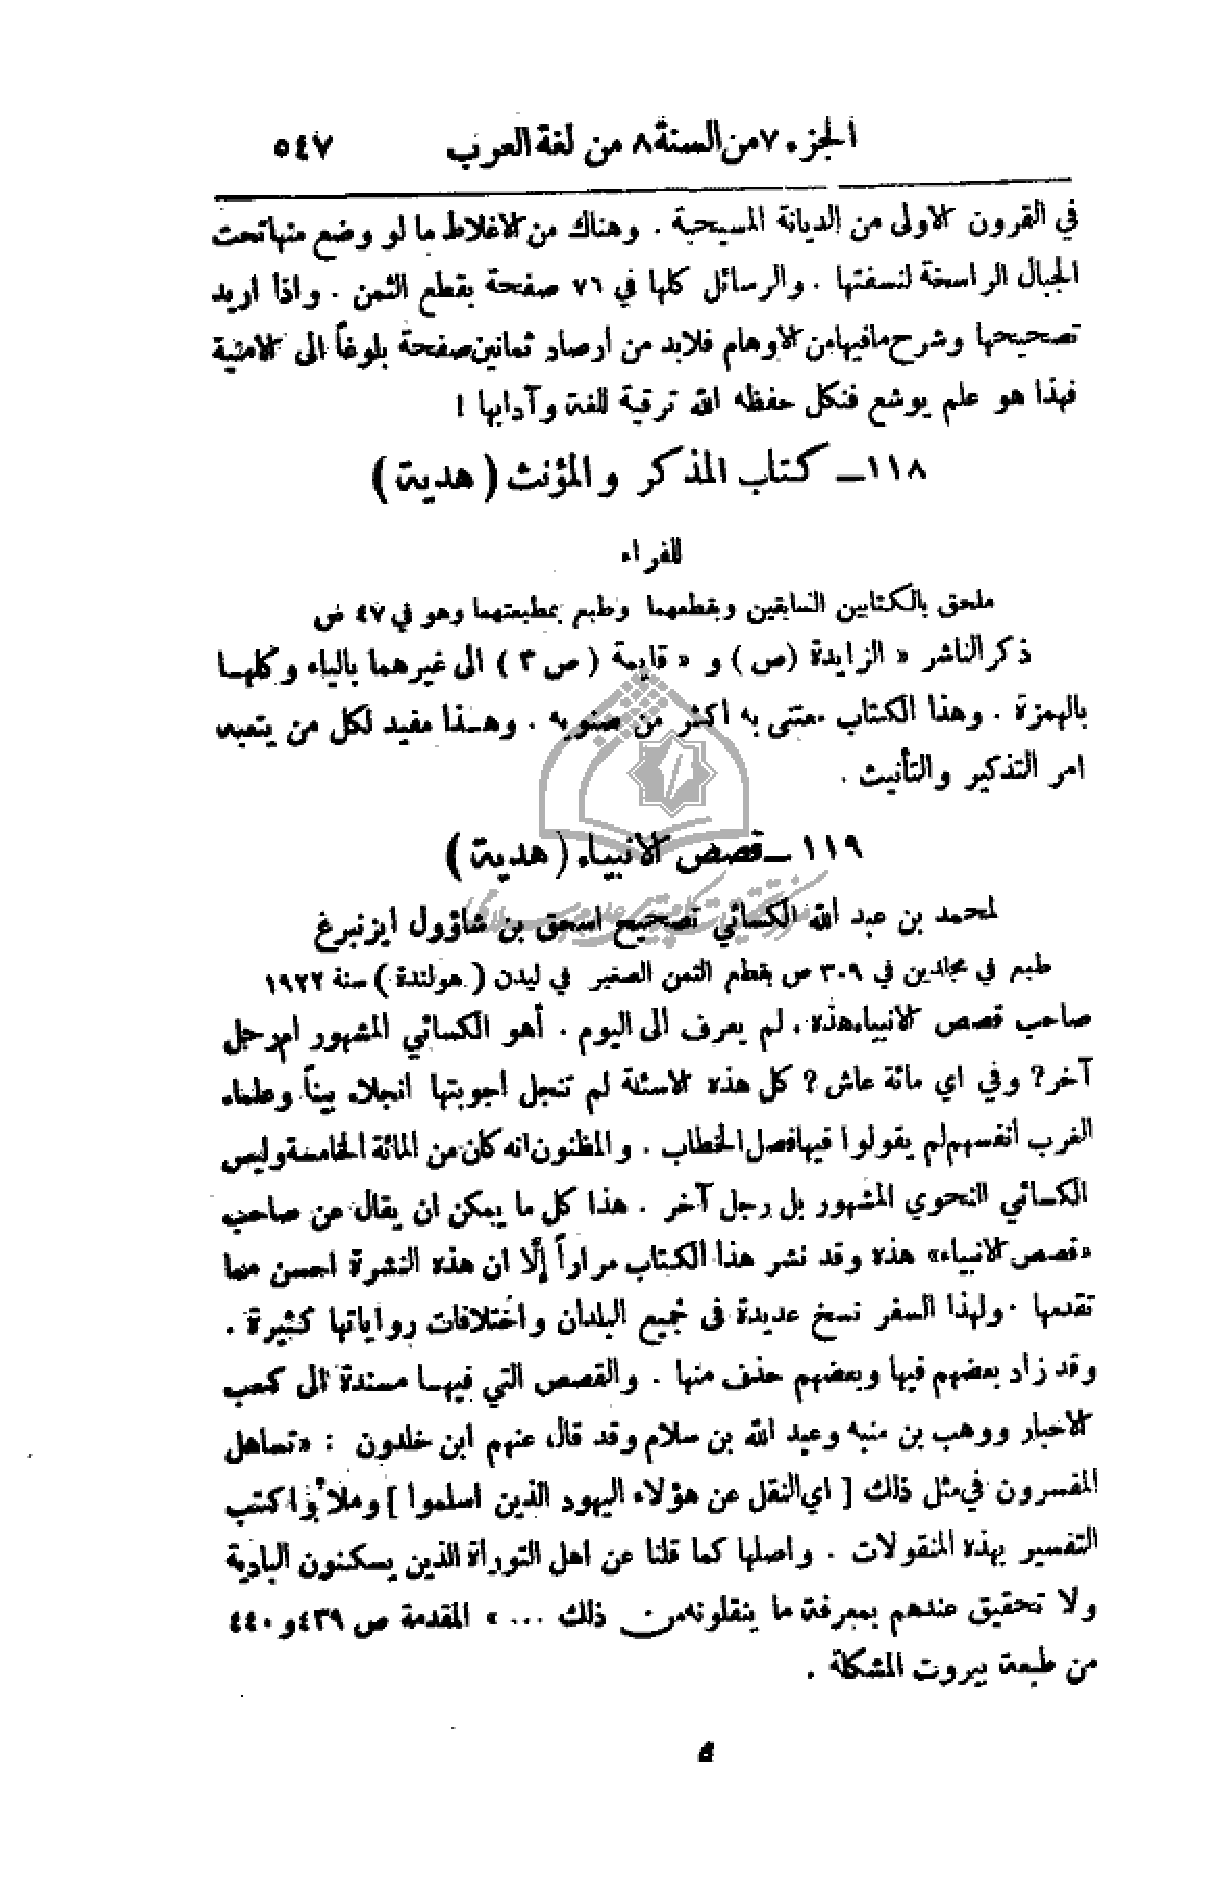 الجزء ٧ من السنة ٨ من لغة العرب ٥٤٧
في القرون الاولى من الديانة المسيحية . وهناك من الاغلاط ما لو وضع منها تحت
الجبال الراسخة لنسفتها . والرسائل كلها في ٧٦ صفحة بقطع الثمن . واذا اريد
تصحيحها وشرح مافيها من الاوهام فلابد من ارصاد ثمانين صفحة بلوغاً الى الامنية
فهذا هو علم يوشع فنكل حفظه الله ترقية للغة وآدابها !
١١٨ ــ كتاب المذكر والمؤنث ( هدية )
للفراء
ملحق بالكتابين السابقين وبقطعهما وطبع بمطبعتهما وهو في ٤٧ ص
ذكر الناشر « الزايدة (ص ) و « قايمة ( ص ٣ ) الى غيرهما بالياء وكلهـا
بالهمزة . وهذا الكتاب معتنى به اكثر من صنويه . وهـذا مفيد لكل من يتعبه
امر التذكير والتأنيث .
١١٩ ــ قصص الانبياء ( هدية )
لمحمد بن عبد الله الكسائي تصحيح اسحق بن شاؤول ايزنبرغ
طبع في مجلدين في ٣٠٩ ص بقطع الثمن الصغير في ليدن ( هولندة ) سنة ١٩٢٢
صاحب قصص الانبياء هذه . لم يعرف الى اليوم . أهو الكسائي المشهور ام رجل
آخر? وفي اي مائة عاش? كل هذه الاسئلة لم تنجل اجوبتها انجلاء بيناً وعلماء
الغرب أنفسهم لم يقولوا فيها فصل الخطاب . والمظنون انه كان من المائة الخامسة وليس
الكسائي النحوي المشهور بل رجل آخر . هذا كل ما يمكن ان يقال عن صاحب
«قصص الانبياء» هذه وقد نشر هذا الكتاب مراراً إلّا ان هذه النشرة احسن مما
تقدمها . ولهذا السفر نسخ عديدة في جميع البلدان واختلافات رواياتها كثيرة .
وقد زاد بعضهم فيها وبعضهم حذف منها . والقصص التي فيهـا مسندة الى كعب
الاحبار ووهب بن منبه وعبد الله بن سلام وقد قال عنهم ابن خلدون : « تساهل
المفسرون في مثل ذلك [ اي النقل عن هؤلاء اليهود الذين اسلموا ] وملأوا كتب
التفسير بهذه المنقولات . واصلها كما قلنا عن اهل التوراة الذين يسكنون البادية
ولا تحقيق عندهم بمعرفة ما ينقلونه من ذلك ... » المقدمة ص ٤٣٩ و ٤٤٠
من طبعة بيروت المشكلة .